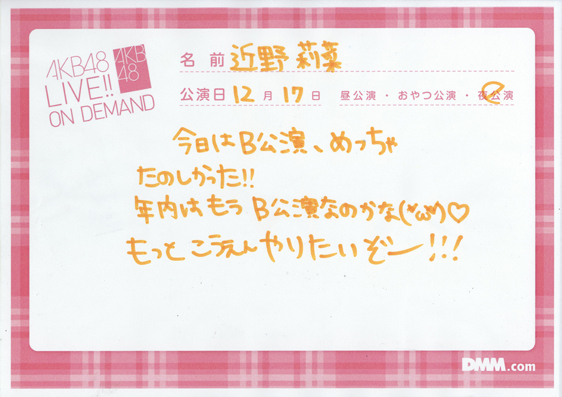 AKB48
LIVE!!
ON DEMAND
AKB
48
名前 近野莉菜
公演日 12月17日 昼公演・おやつ公演・夜公演
今日はB公演、めっちゃ
たのしかった!!
年内はもうB公演なのかな(*'ω'*)♡
もっとこうえんやりたいぞー!!!
DMM.com